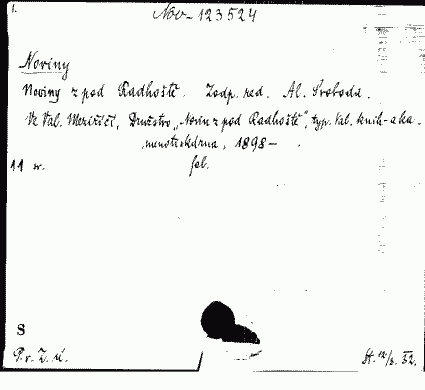 1.
Nov-123524
Noviny
Noviny z pod Radhoště. Zodp. red. Al. Svoboda.
Ve Val. Meziříčí, Družstvo „Novin z pod Radhoště", typ. Val. knih- a ka-
menotiskárna, 1898 –
11 w. fol.
S
P. r. Z. ú. St. 12/3. 52.